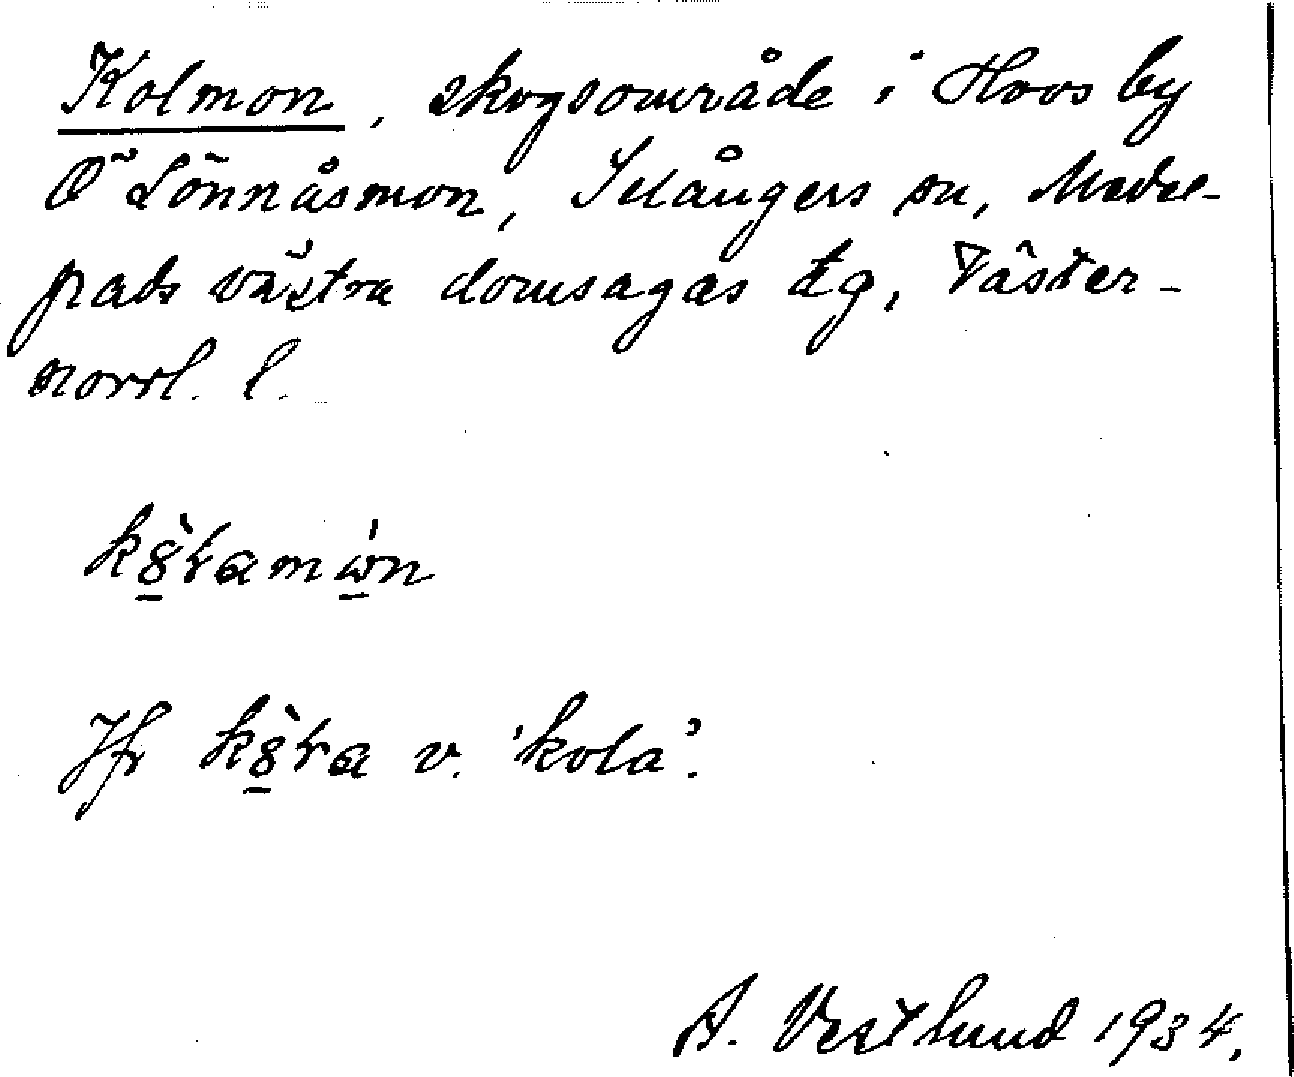 Kolmon, skogsområde i Hovs by
Ö Lönnåsmon, Selångers sn, Medel-
pads västra domsagas tg, Väster-
norrl. l.
Jfr v. 'kola'.
A. Vestlund 1934.